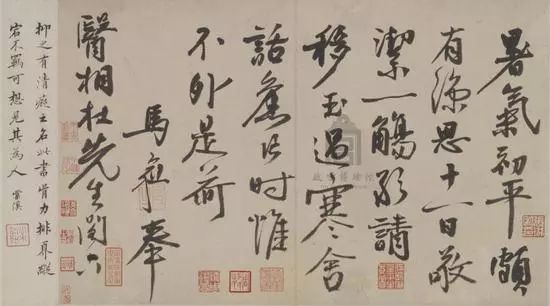 暑氣初平頗
有涼思十一日敬
潔一觴敢請
移玉過寒舍
話舊片時惟
不外是荷
馬愈奉
醫相杜先生閣下
抑之有清癡之名此書骨力排奡縱
宕不羈可想見其為人
故宮博物院